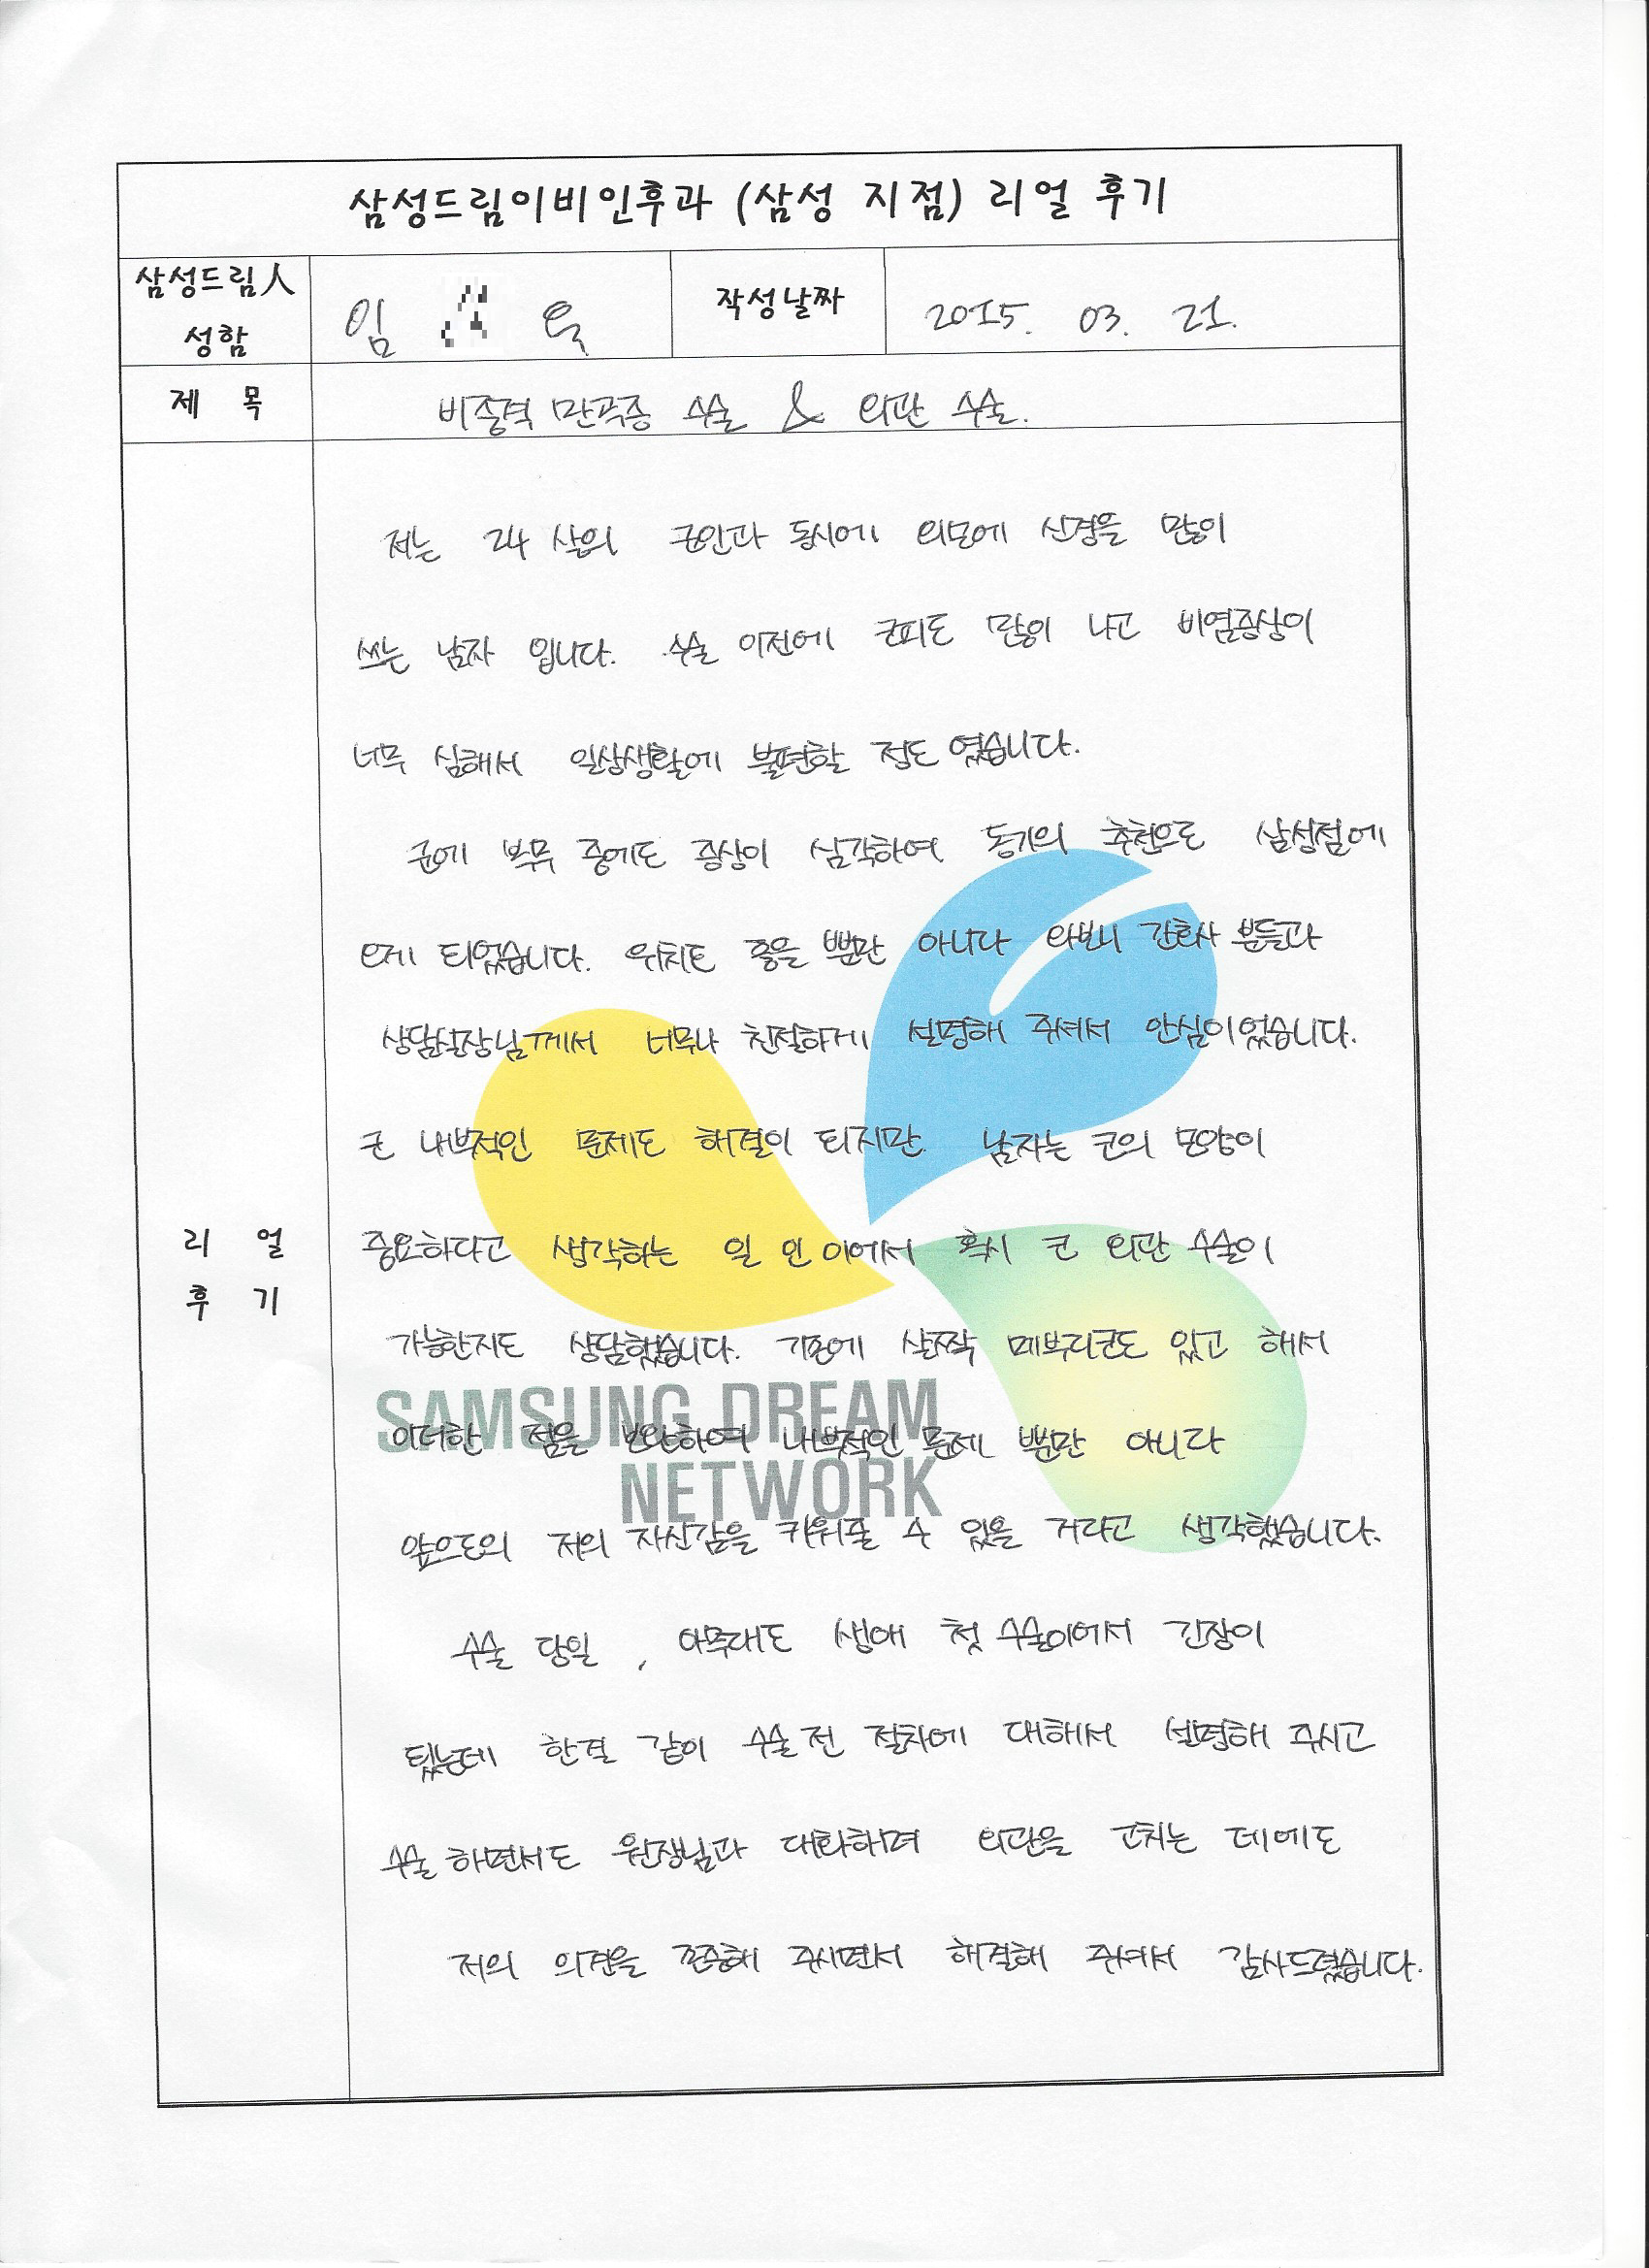 삼성드림이비인후과 (삼성 지점) 리얼 후기
삼성드림人 성함
임 욱
작성날짜
2015. 03. 21.
제 목
비중격 만곡증 수술 & 외관 수술.
리 얼 후 기
저는 24살의 군인과 동시에 외모에 신경을 많이
쓰는 남자 입니다. 수술 이전에 코피도 많이 나고 비염증상이
너무 심해서 일상생활에 불편할 정도 였습니다.
군에 복무 중에도 증상이 심각하여 동기의 추천으로 삼성점에
오게 되었습니다. 위치도 좋을 뿐만 아니라 와보니 간호사 분들과
상담실장님께서 너무나 친절하게 설명해 주셔서 안심이었습니다.
코 내부적인 문제도 해결이 되지만 남자는 코의 모양이
중요하다고 생각하는 일 인 이에서 혹시 코 외관 수술이
가능한지도 상담했습니다. 기존에 살짝 메부리코도 있고 해서
이러한 점을 보완하여 내부적인 문제 뿐만 아니라
앞으로의 저의 자신감을 키워줄 수 있을 거라고 생각했습니다.
수술 당일, 아무래도 생애 첫 수술이에서 긴장이
됬는데 한결 같이 수술 전 절차에 대해서 설명해 주시고
수술 하면서도 원장님과 대화하며 외관을 고치는 데에도
저의 의견을 존중해 주시면서 해결해 주셔서 감사드렸습니다.
SAMSUNG DREAM
NETWORK